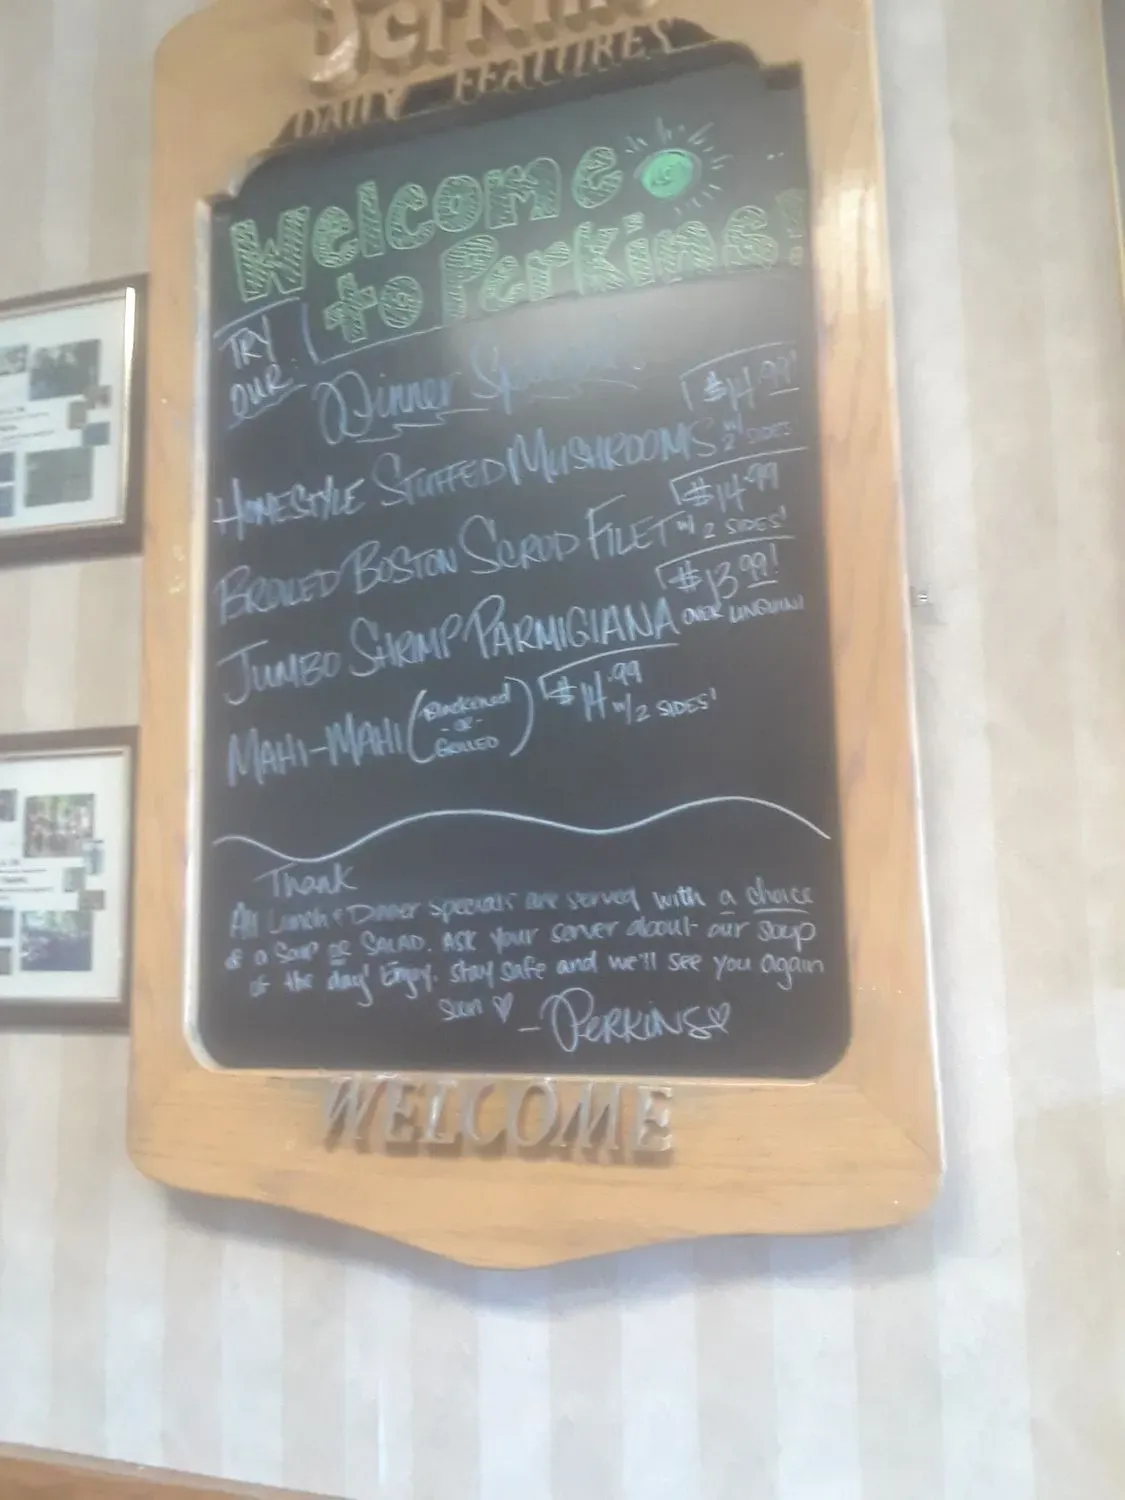 Perkins
DAILY FEATURES
Welcome
to Perkins!
TRY
OUR
Dinner Specials
$14.99!
HOMESTYLE STUFFED MUSHROOMS w/ 2 SIDES
$14.99
BROILED BOSTON SCROD FILET w/ 2 SIDES!
$13.99!
JUMBO SHRIMP PARMIGIANA OVER LINGUINI
MAHI-MAHI (Blackened -or- GRILLED) $14.99 w/2 SIDES!
Thank
All Lunch & Dinner specials are served with a choice
of a Soup or SALAD. Ask your server about our soup
of the day! Enjoy. stay safe and we'll see you again
soon ♡ - PERKINS♡
WELCOME